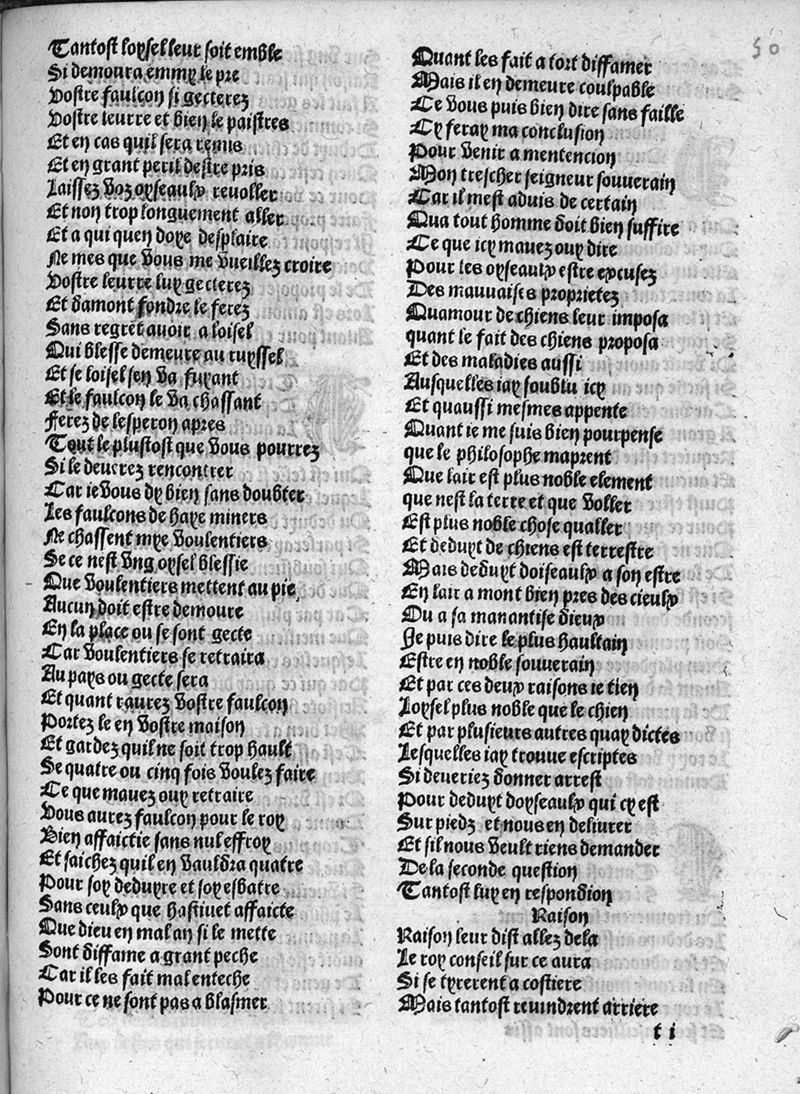 Tantost loysel leur soit emble
Si demoura emmy le pre
Vostre faulcon si gecterez
Vostre leurre et bien le paistres
Et en cas quil sera remis
Et en grant peril destre pris
Laissez voz oyseaulx revoller
Et non trop longuement aller
Et a qui quen doye desplaire
Ne mes que vous me vueillez croire
Vostre leurre luy gecterez
Et damont fondre le ferez
Sans regret avoir a loisel
Qui blesse demeure au ruyssel
Et se loisel sen va fuyant
Et le faulcon le va chassant
Ferez de lesperon apres
Tout le plustost que vous pourrez
Si le devrez rencontrer
Car ie vous dy bien sans doubter
Les faulcons de haye miners
Ne chassent mye voulentiers
Se ce nest vng oysel blessie
Que voulentiers mettent au pie
Aucun doit estre demoure
En la place ou se sont gecte
Car voulentiers se retraira
Au pays ou gecte sera
Et quant raurez vostre faulcon
Portez le en vostre maison
Et gardez quil ne soit trop hault
Se quatre ou cinq fois voulez faire
Ce que mavez ouy retraire
Vous aurez faulcon pour le roy
Bien affaictie sans nul effroy
Et saichez quil en vauldra quatre
Pour soy deduyre et soy esbatre
Sans ceulx que hastiuet affaicte
Que dieu en mal an si le mette
Sont diffame a grant peche
Car il les fait mal enteche
Pour ce ne sont pas a blasmer
50
Quant les fait a tort diffamer
Mais il en demeure coulpable
Ce vous puis bien dire sans faille
Cy feray ma conclusion
Pour venir a mentencion
Mon trescher seigneur souverain
Car il mest aduis de certain
Qua tout homme doit bien suffire
Ce que icy mauez ouy dire
Pour les oyseaulx estre excusez
Des mauvaises proprietez
Quamour de chiens leur imposa
quant le fait des chiens proposa
Et des maladies aussi
Ausquelles iay soublu icy
Et quaussi mesmes appente
Quant ie me suis bien pourpense
que le philosophe maprent
Que lair est plus noble element
que nest la terre et que voller
Est plus noble chose qualler
Et deduyt de chiens est terrestre
Mais deduyt doiseaulx a son estre
En lair a mont bien pres des cieulx
Ou a sa manantise dieux
Je puis dire le plus haultain
Estre en noble souverain
Et par ces deux raisons ie tien
Loysel plus noble que le chien
Et par plusieurs autres quay dictes
Lesquelles iay trouue escriptes
Si deueriez donner arrest
Pour deduyt doyseaulx qui cy est
Sur piedz et nous en deliurer
Et sil nous veult riens demander
De la seconde question
Tantost luy en respondion
Raison
Raison leur dist allez dela
Le roy conseil sur ce aura
Si se tyrerent a costiere
Mais tantost reuindrent arriere
t i